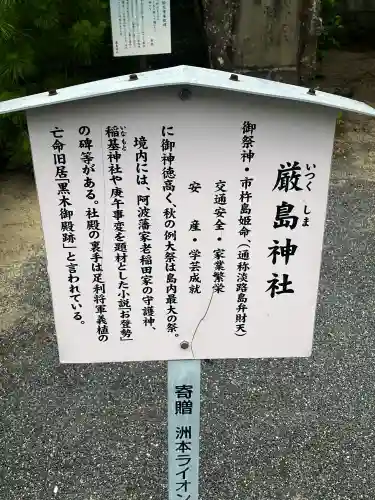 厳島神社
いつくしま
御祭神・市杵島姫命(通称淡路島弁財天)
交通安全・家業繁栄
安産・学芸成就
に御神徳高く、秋の例大祭は島内最大の祭。
境内には、阿波藩家老稲田家の守護神、
稲基神社や庚午事変を題材とした小説「お登勢」
いなもと
の碑等がある。社殿の裏手は足利将軍義植の
亡命旧居「黒木御殿跡」と言われている。
寄贈 洲本ライオン